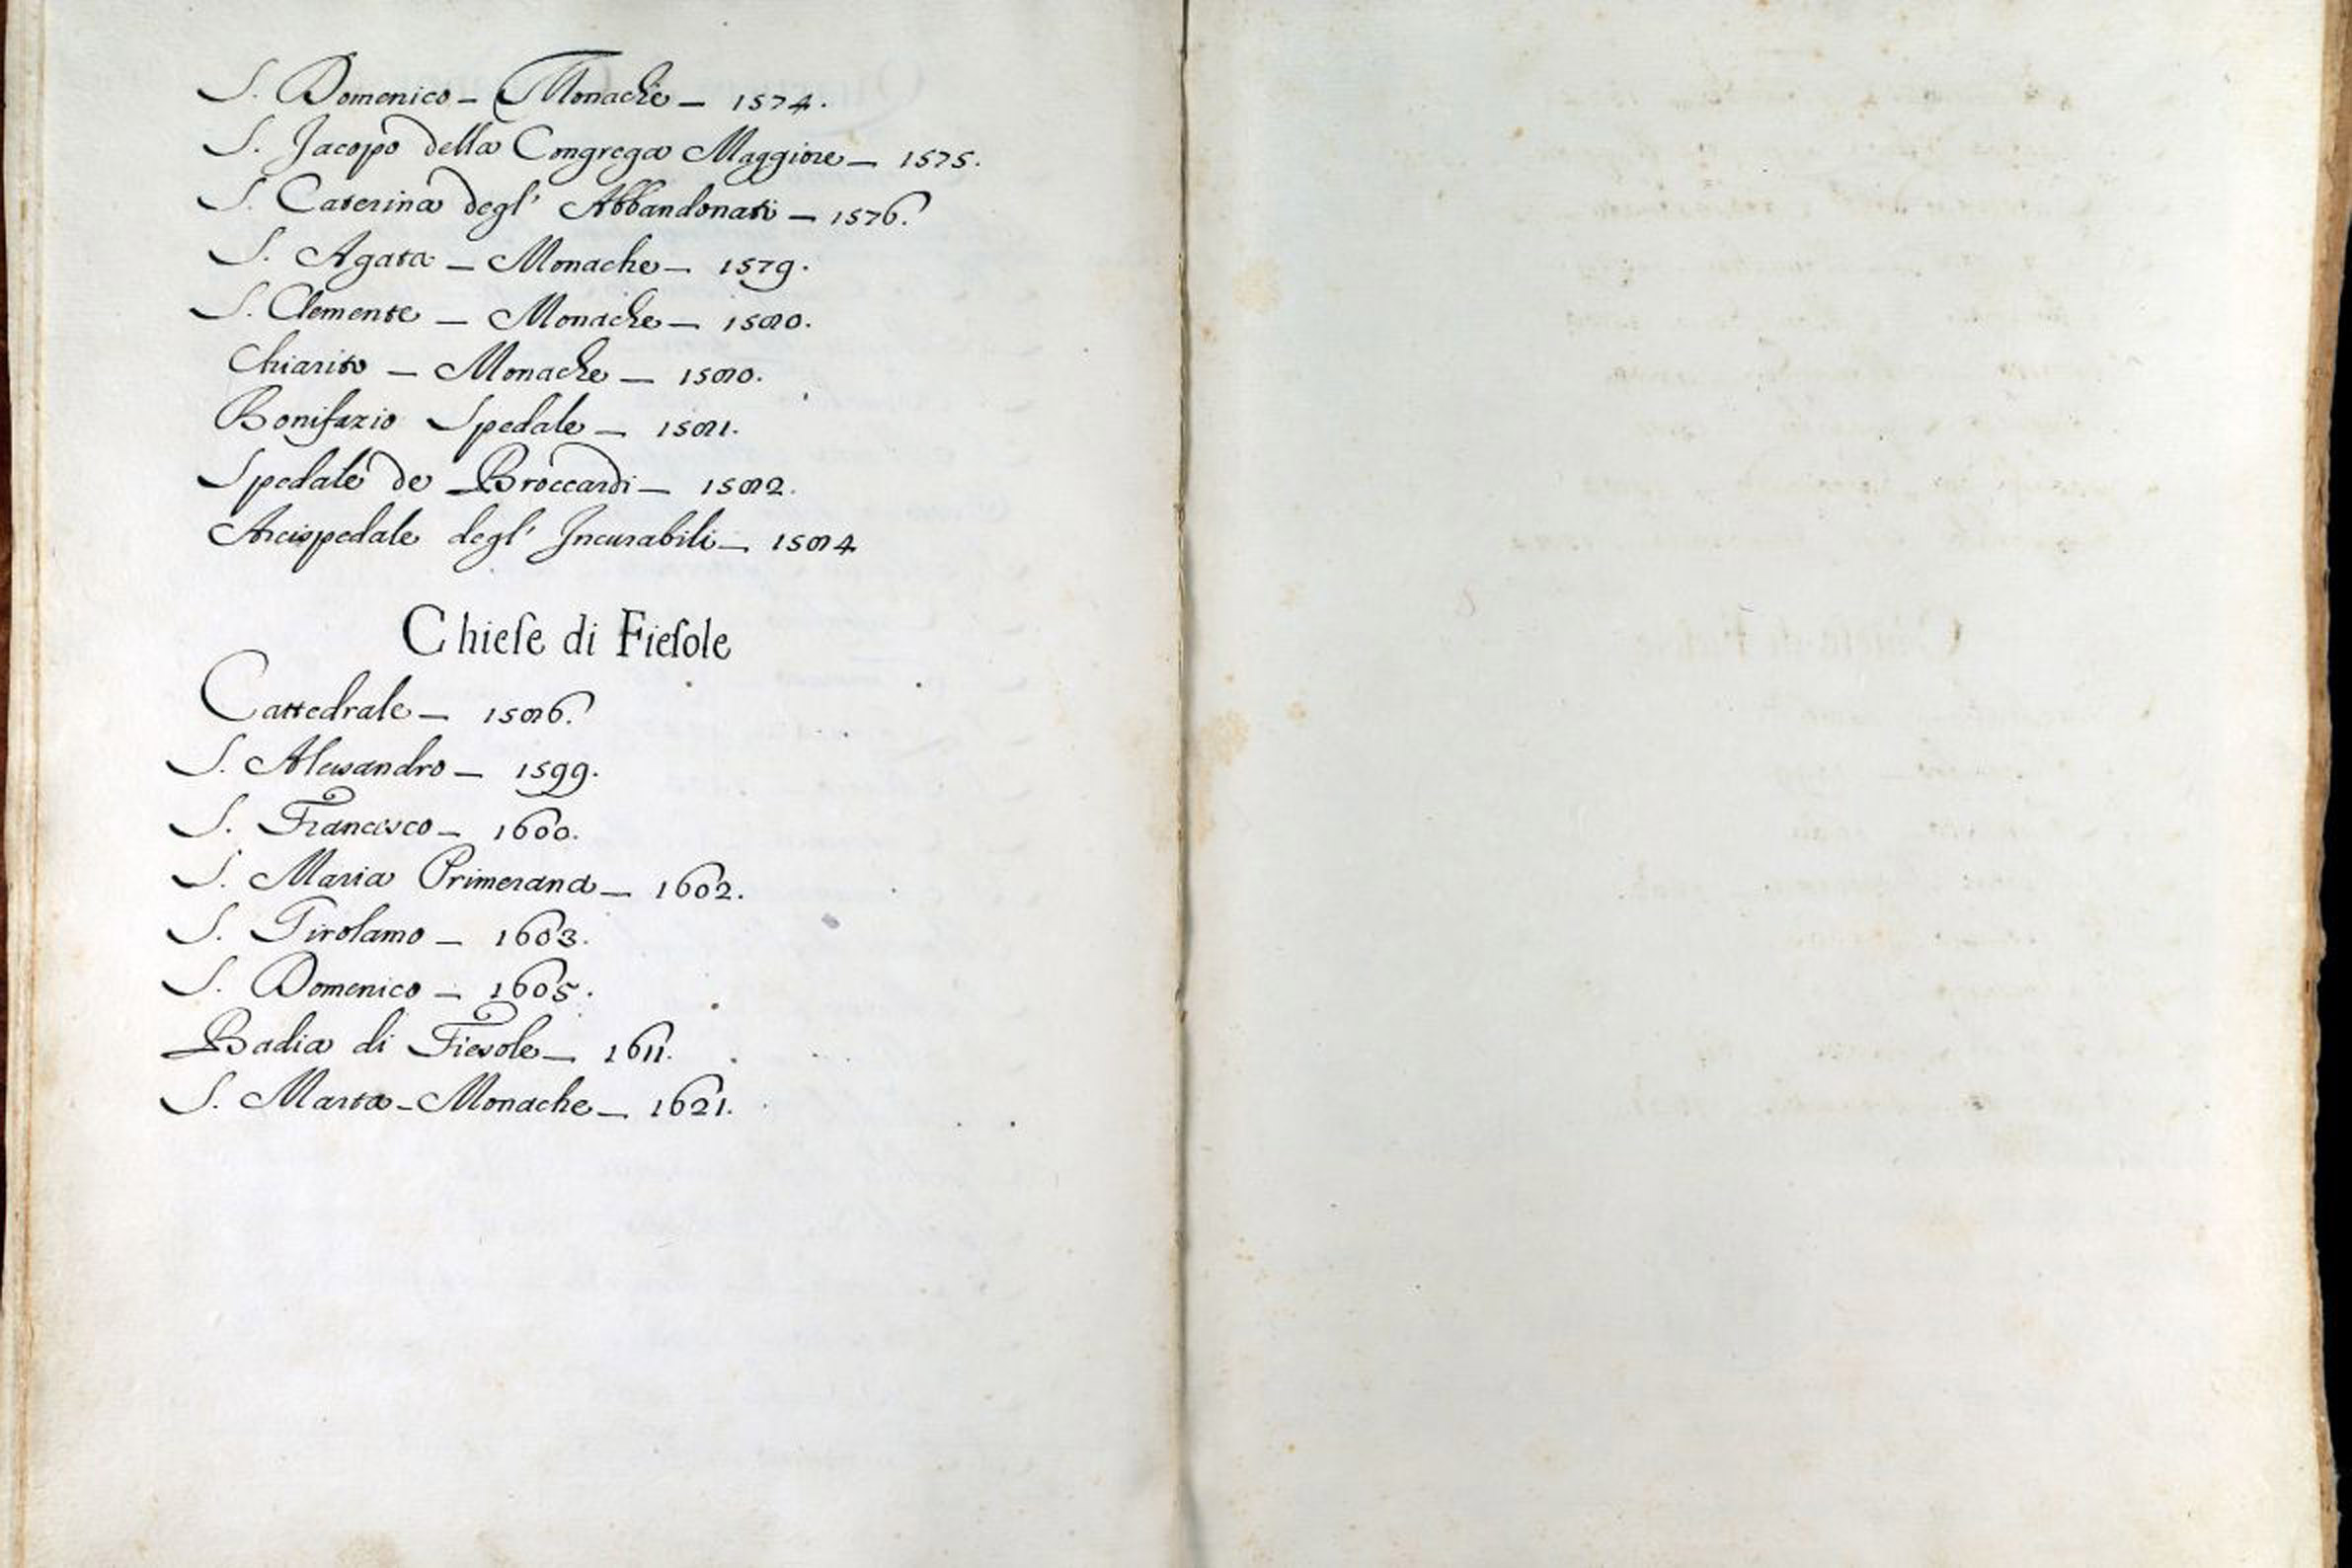 S. Domenico - Monache - 1574.
S. Jacopo della Congrega Maggiore - 1575.
S. Caterina degl' Abbandonati - 1576.
S. Agata - Monache - 1579.
S. Clemente - Monache - 1580.
Chiarito - Monache - 1580.
Bonifazio Spedale - 1581.
Spedale de Broccardi - 1582.
Arcispedale degl' Incurabili - 1584
Chieſe di Fieſole
Cattedrale - 1586.
S. Alessandro - 1599.
S. Francesco - 1600.
S. Maria Primerana - 1602.
S. Girolamo - 1603.
S. Domenico - 1605.
Badia di Fiesole - 1611.
S. Marta - Monache - 1621.